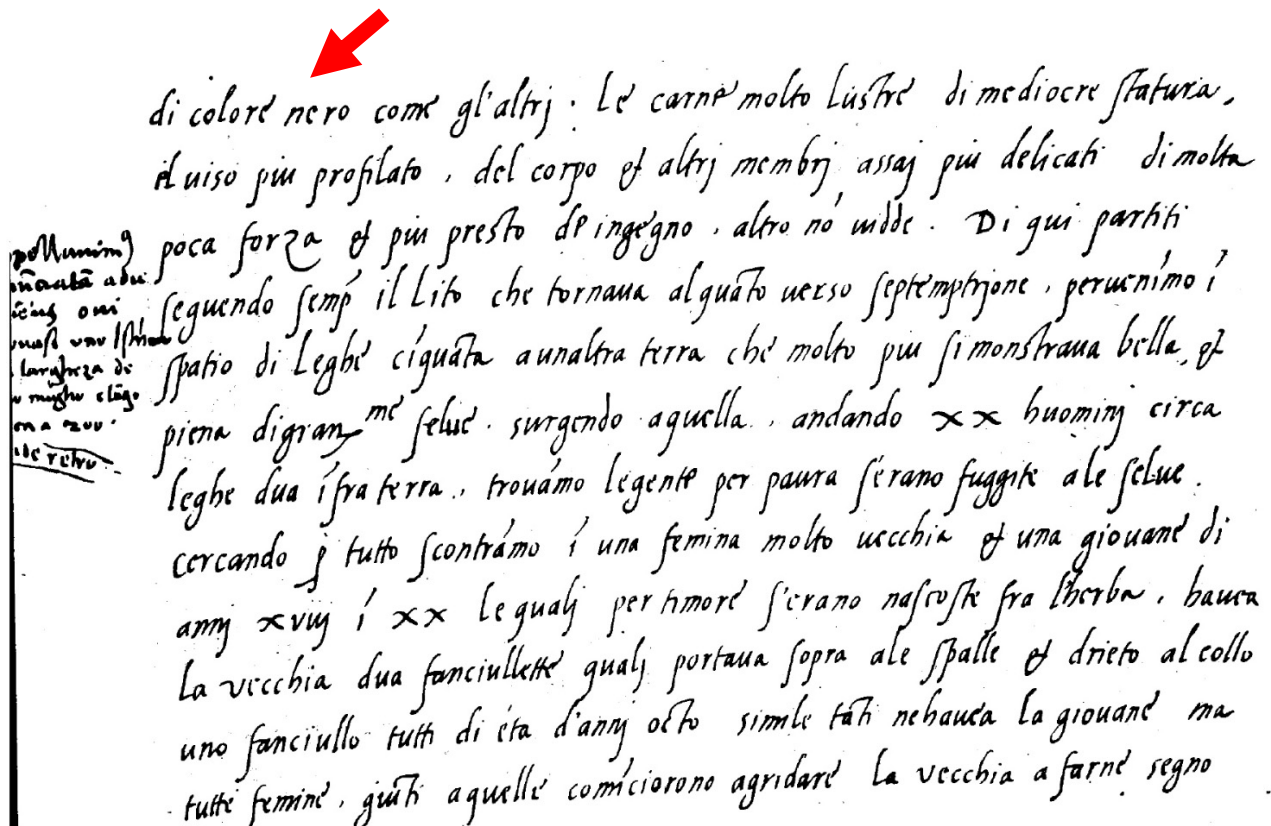 di colore nero come gl'altrj . Le carne molto lustre di mediocre statura,
il uiso piu profilato , del corpo et altrj membrj assaj piu delicati di molta
poca forza et piu presto de ingegno , altro nō uidde . Di qui partiti
seguendo semp̄ il Lito che tornaua alquāto uerso septemptrjone , peruenimo ī
spatio di Leghe cīquāta a unaltra terra che molto piu si monstraua bella, et
piena di gran.me selue . surgendo a quella , andando xx huominj circa
leghe dua īfra terra , trouamo le gente per paura s'erano fuggite ale selue .
cercando p̄ tutto scontramo ī una femina molto uecchia et una giouane di
annj xviij ī xx le qualj per timore s'erano nascoste fra l'herba , hauea
La vecchia dua fanciullette qualj portaua sopra ale spalle et drieto al collo
uno fanciullo tutti di eta d'annj octo simile tāti ne hauea la giouane ma
tutte femine , giūti a quelle comīciorono a gridare La vecchia a farne segno
larghezza de